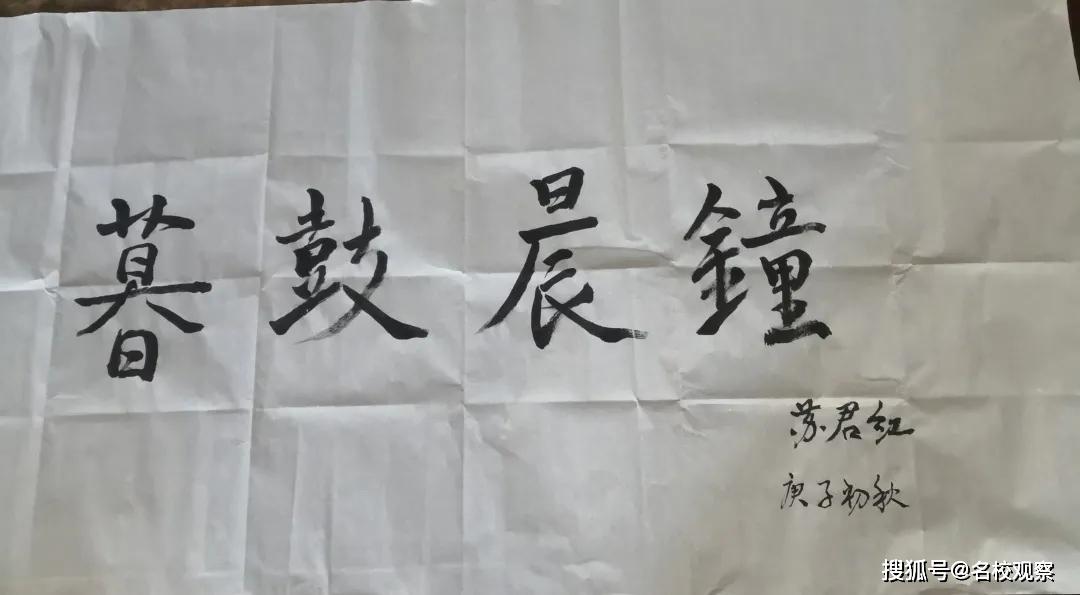 暮鼓晨鐘
苏君红
庚子初秋
搜狐号@名校观察